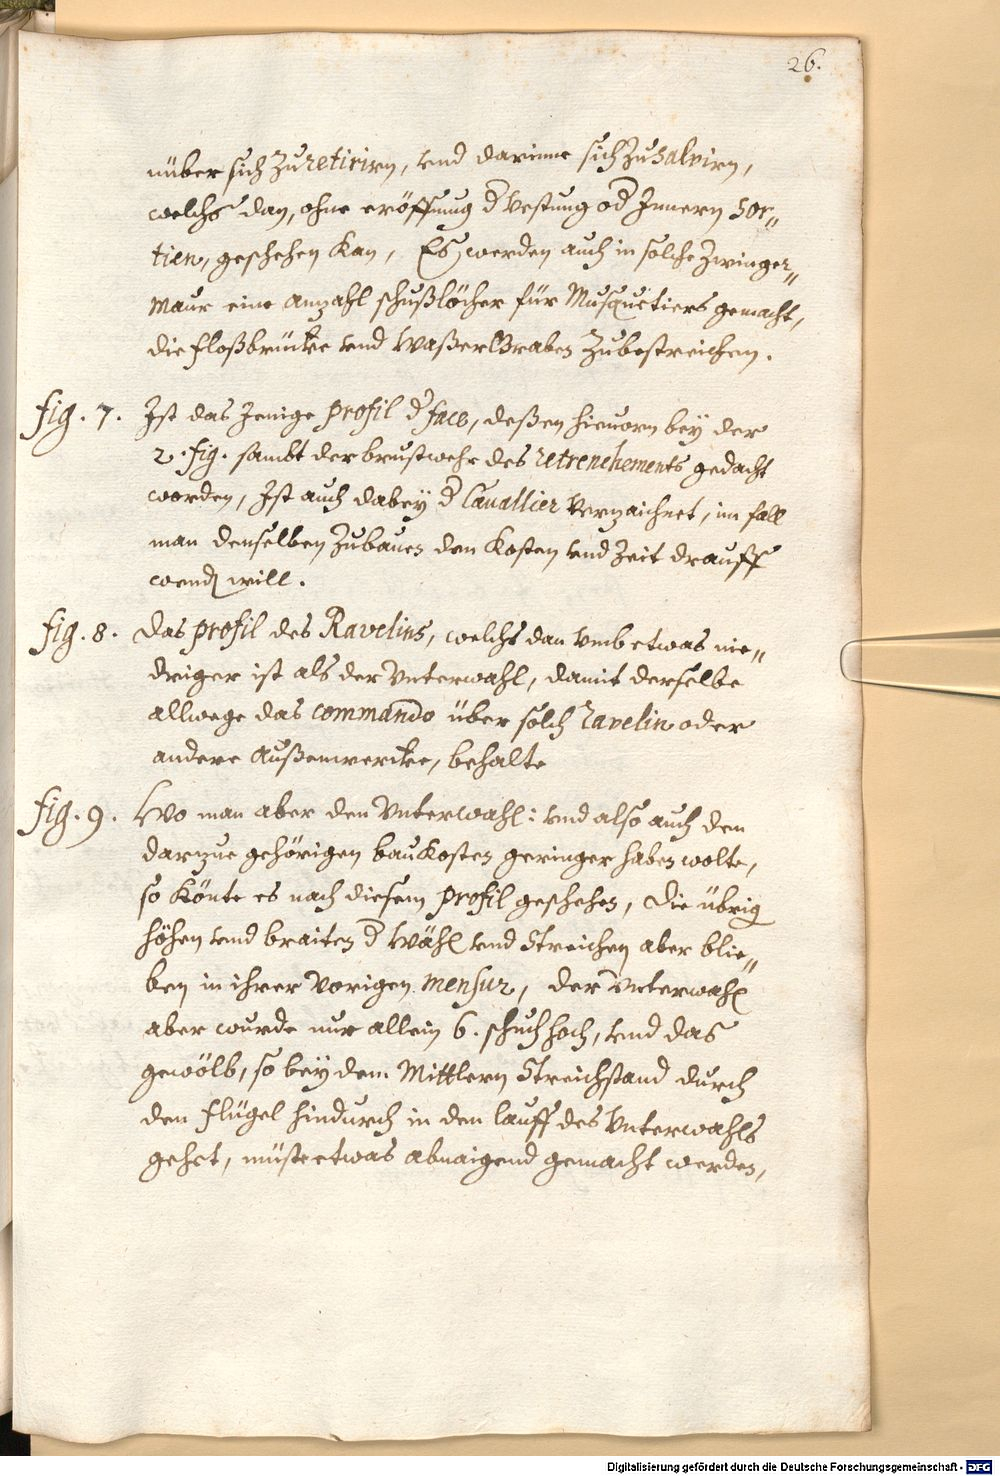 26.
nüber sich zu retirirn, vnd darinne sich zu salvirn,
welchs dan, ohne eröffnung d Vestung od Innern sor„
tien, geschehen kan, Es werden auch in solche Zwinger„
Maur eine anzahl schußlöcher für Musquetiers gemacht,
die floßbrücke vnd waßer Graben zubestreichen.
fig. 7. Ist das Jenige profil d face, deßen hieuorn bey der
2. fig. sambt der brustwehr des retrenchements gedacht
worden, Ist auch dabey d Cauallier verzaichnet, im fall
man denselben zubauen den Kosten vnd Zeit drauff
wend will.
fig. 8. das profil des Ravelins, welchs dan vmb etwas nie„
driger ist als der Vnterwahl, damit derselbe
allwege das commando über solch ravelin oder
andere Außenwercke, behalte
fig. 9. Wo man aber den Vnterwahl: vnd also auch den
darzue gehörigen bauKosten geringer haben wolte,
so könte es nach diesem profil geschehen, die übrig
höhen vnd braiten d Wähl vnd Streichen aber blie„
ben in ihrer vorigen mensur, der Vnterwahl
aber wurde nur allein 6. schuch hoch, vnd das
gewölb, so bey dem Mittlern Streichstand durch
den flügel hindurch in den lauff des Vnterwahls
gehet, müste etwas abnaigend gemacht werden,
Digitalisierung gefördert durch die Deutsche Forschungsgemeinschaft - DFG